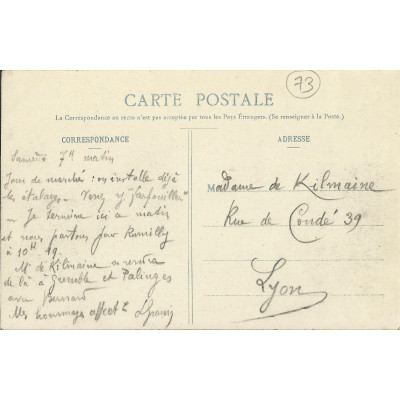 73
CARTE POSTALE
La Correspondance au recto n'est pas acceptée par tous les Pays Étrangers. (Se renseigner à la Poste.)
CORRESPONDANCE
Samedi 7h matin
Jour de marché : on installe déjà
les étalages. Venez y "farfouiller"
– Je termine ici ce matin
et nous partons pour Rumilly
à 10H 19.
Mr de Kilmaine se rendra
de là à Grenoble et Palinges
avec Bernard
Mes hommages affect
ADRESSE
Madame de Kilmaine
Rue de Condé 39
Lyon